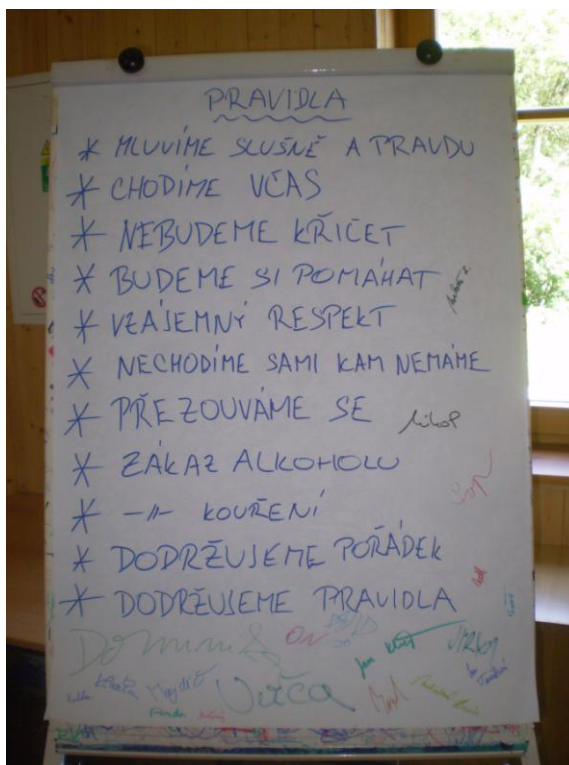 PRAVIDLA
* MLUVÍME SLUŠNĚ A PRAVDU
* CHODÍME VČAS
* NEBUDEME KŘIČET
* BUDEME SI POMÁHAT
* VZÁJEMNÝ RESPEKT
* NECHODÍME SAMI KAM NEMÁME
* PŘEZOUVÁME SE
* ZÁKAZ ALKOHOLU
* -〃- KOUŘENÍ
* DODRŽUJEME POŘÁDEK
* DODRŽUJEME PRAVIDLA